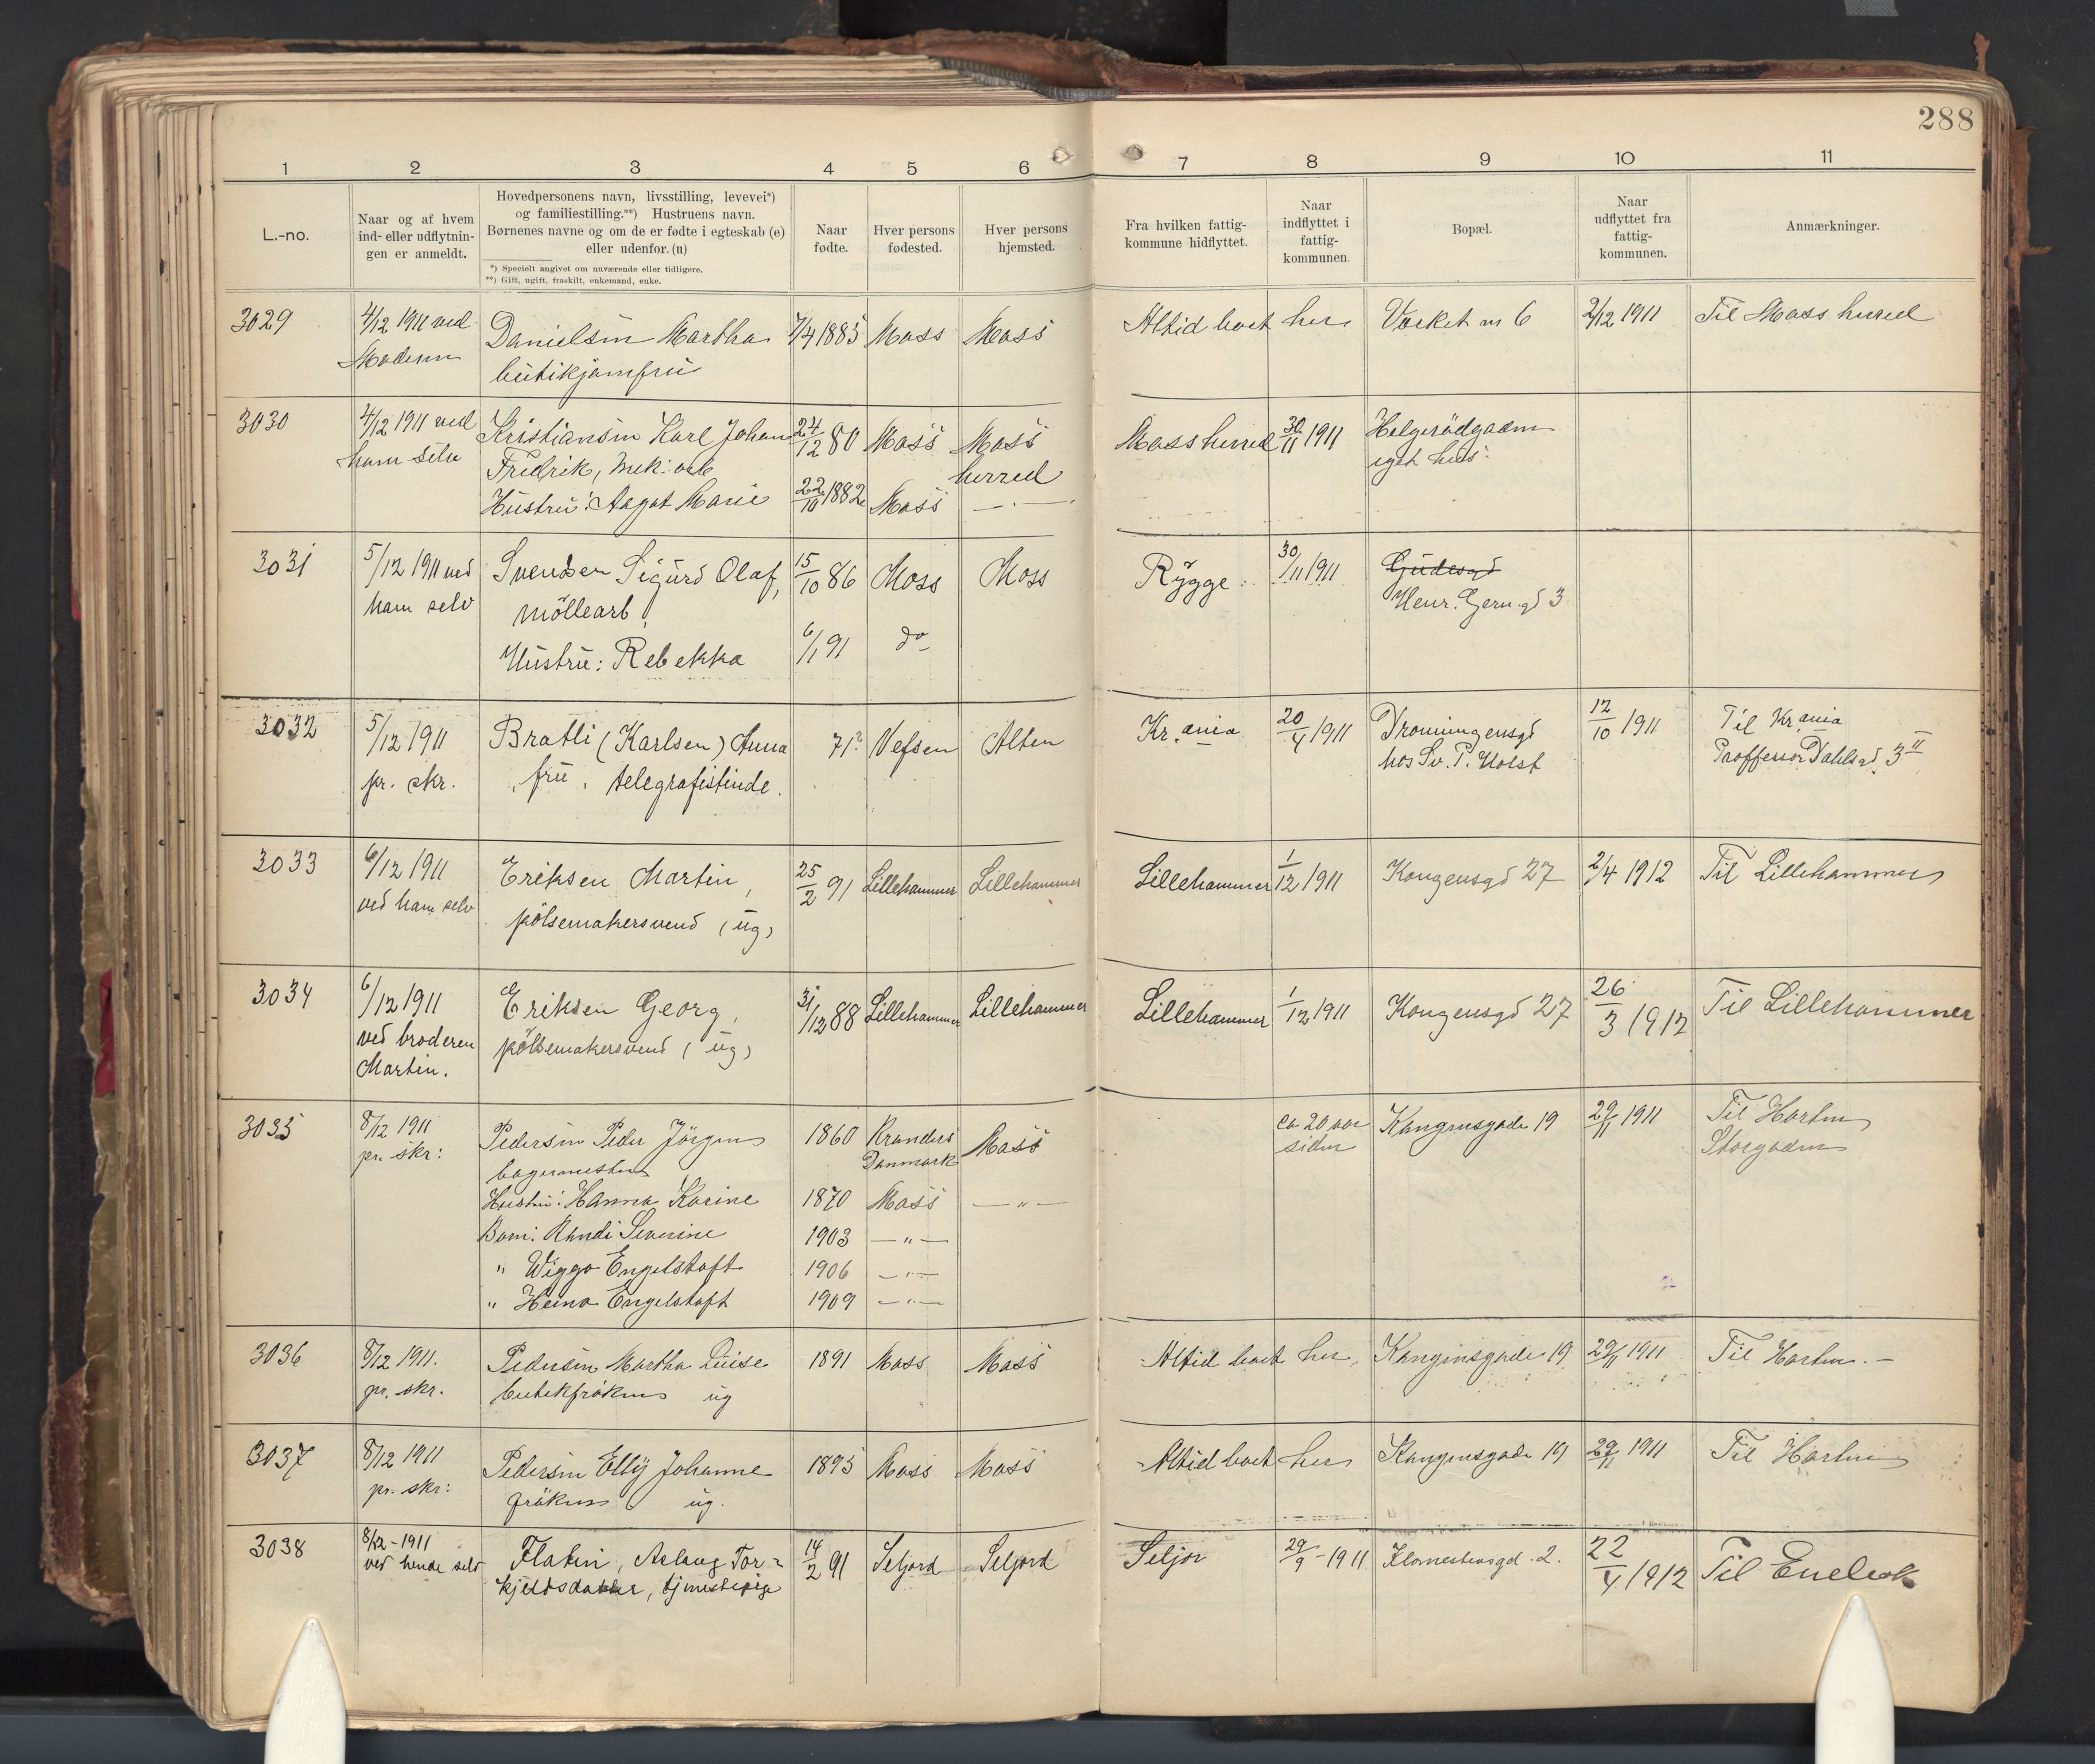 288
1 2 3 4 5 6 7 8 9 10 11
L.-no.
Naar og af hvem
ind- eller udflytnin-
gen er anmeldt.
Hovedpersonens navn, livsstilling, levevei*)
og familiestilling.**) Hustruens navn.
Børnenes navne og om de er fødte i egteskab (e)
eller udenfor. (u)
*) Specielt angivet om nuværende eller tidligere.
**) Gift, ugift, fraskilt, enkemand, enke.
Naar
fødte.
Hver persons
fødested.
Hver persons
hjemsted.
Fra hvilken fattig-
kommune hidflyttet.
Naar
indflyttet i
fattig-
kommunen.
Bopæl.
Naar
udflyttet fra
fattig-
kommunen.
Anmærkninger.
3029 4/12 1911 ved Danielsen Martha 7/4 1885 Moss Moss Altid boet her Værket no 6 2/12 1911 Til Moss herred
Moderen butikjomfru
3030 4/12 1911 ved Kristiansen Karl Johan 24/12 80 Moss Moss Moss herred 30/11 1911 Helgerödgaden
ham selv Fredrik, mek. arb herred eget hus.
Hustru: Aagot Marie 22/10 1882 Moss — . —
3031 5/12 1911 ved Svendsen Sigurd Olaf, 15/10 86 Moss Moss Rygge 30/11 1911 Gudesgd
ham selv möllearb. Henr. Gern. gd 3
Hustru: Rebekka 6/1 91 do
3032 5/12 1911 Bratli (Karlsen) Anna 71? Vefsen Alten Kr.ania 20/4 1911 Dronningensgd 12/10 1911 Til Kr.ania
pr. skr. fru, telegrafistinde. hos Sv. P. Holst Proffessor Dahlsgd. 3 II
3033 6/12 1911 Eriksen Martin, 25/2 91 Lillehammer Lillehammer Lillehammer 1/12 1911 Kongensgd 27 2/4 1912 Til Lillehammer
ved ham selv pölsemakersvend (ug)
3034 6/12 1911 Eriksen Georg, 31/12 88 Lillehammer Lillehammer Lillehammer 1/12 1911 Kongensgd 27 26/3 1912 Til Lillehammer
ved broderen pölsemakersvend (ug)
Martin.
3035 8/12 1911 Pedersen Peder Jörgen 1860 Kranders Moss ca 20 aar Kongensgade 19 29/11 1911 Til Horten
pr. skr: bagermester Danmark siden Storgaden
Hustru: Hanna Karine 1870 Moss — " —
Barn: Randi Severine 1903 — " —
" Wiggo Engelstoft 1906 — " —
" Heino Engelstoft 1909 — " —
3036 8/12 1911. Pedersen Martha Luise 1891 Moss Moss Altid boet her, Kongensgade 19 29/11 1911 Til Horten. —
pr. skr. butikfröken ug
3037 8/12 1911 Pedersen Elly Johanne 1893 Moss Moss Altid boet her Kongensgade 19 29/11 1911 Til Horten
pr. skr: fröken ug.
3038 8/12 - 1911 Flatin, Aslaug Tor- 14/2 91 Seljord Seljord Seljor 29/9 - 1911 2. 22/4 1912 Til
ved hende selv kjeldsdatter, tjenestepige